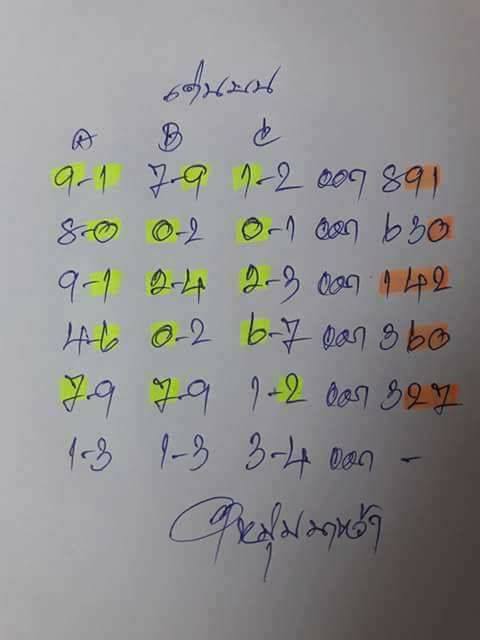 เด่นบน
A B C
9-1 7-9 1-2 ออก 891
8-0 0-2 0-1 ออก 630
9-1 2-4 2-3 ออก 142
4-6 0-2 6-7 ออก 360
7-9 7-9 1-2 ออก 327
1-3 1-3 3-4 ออก -